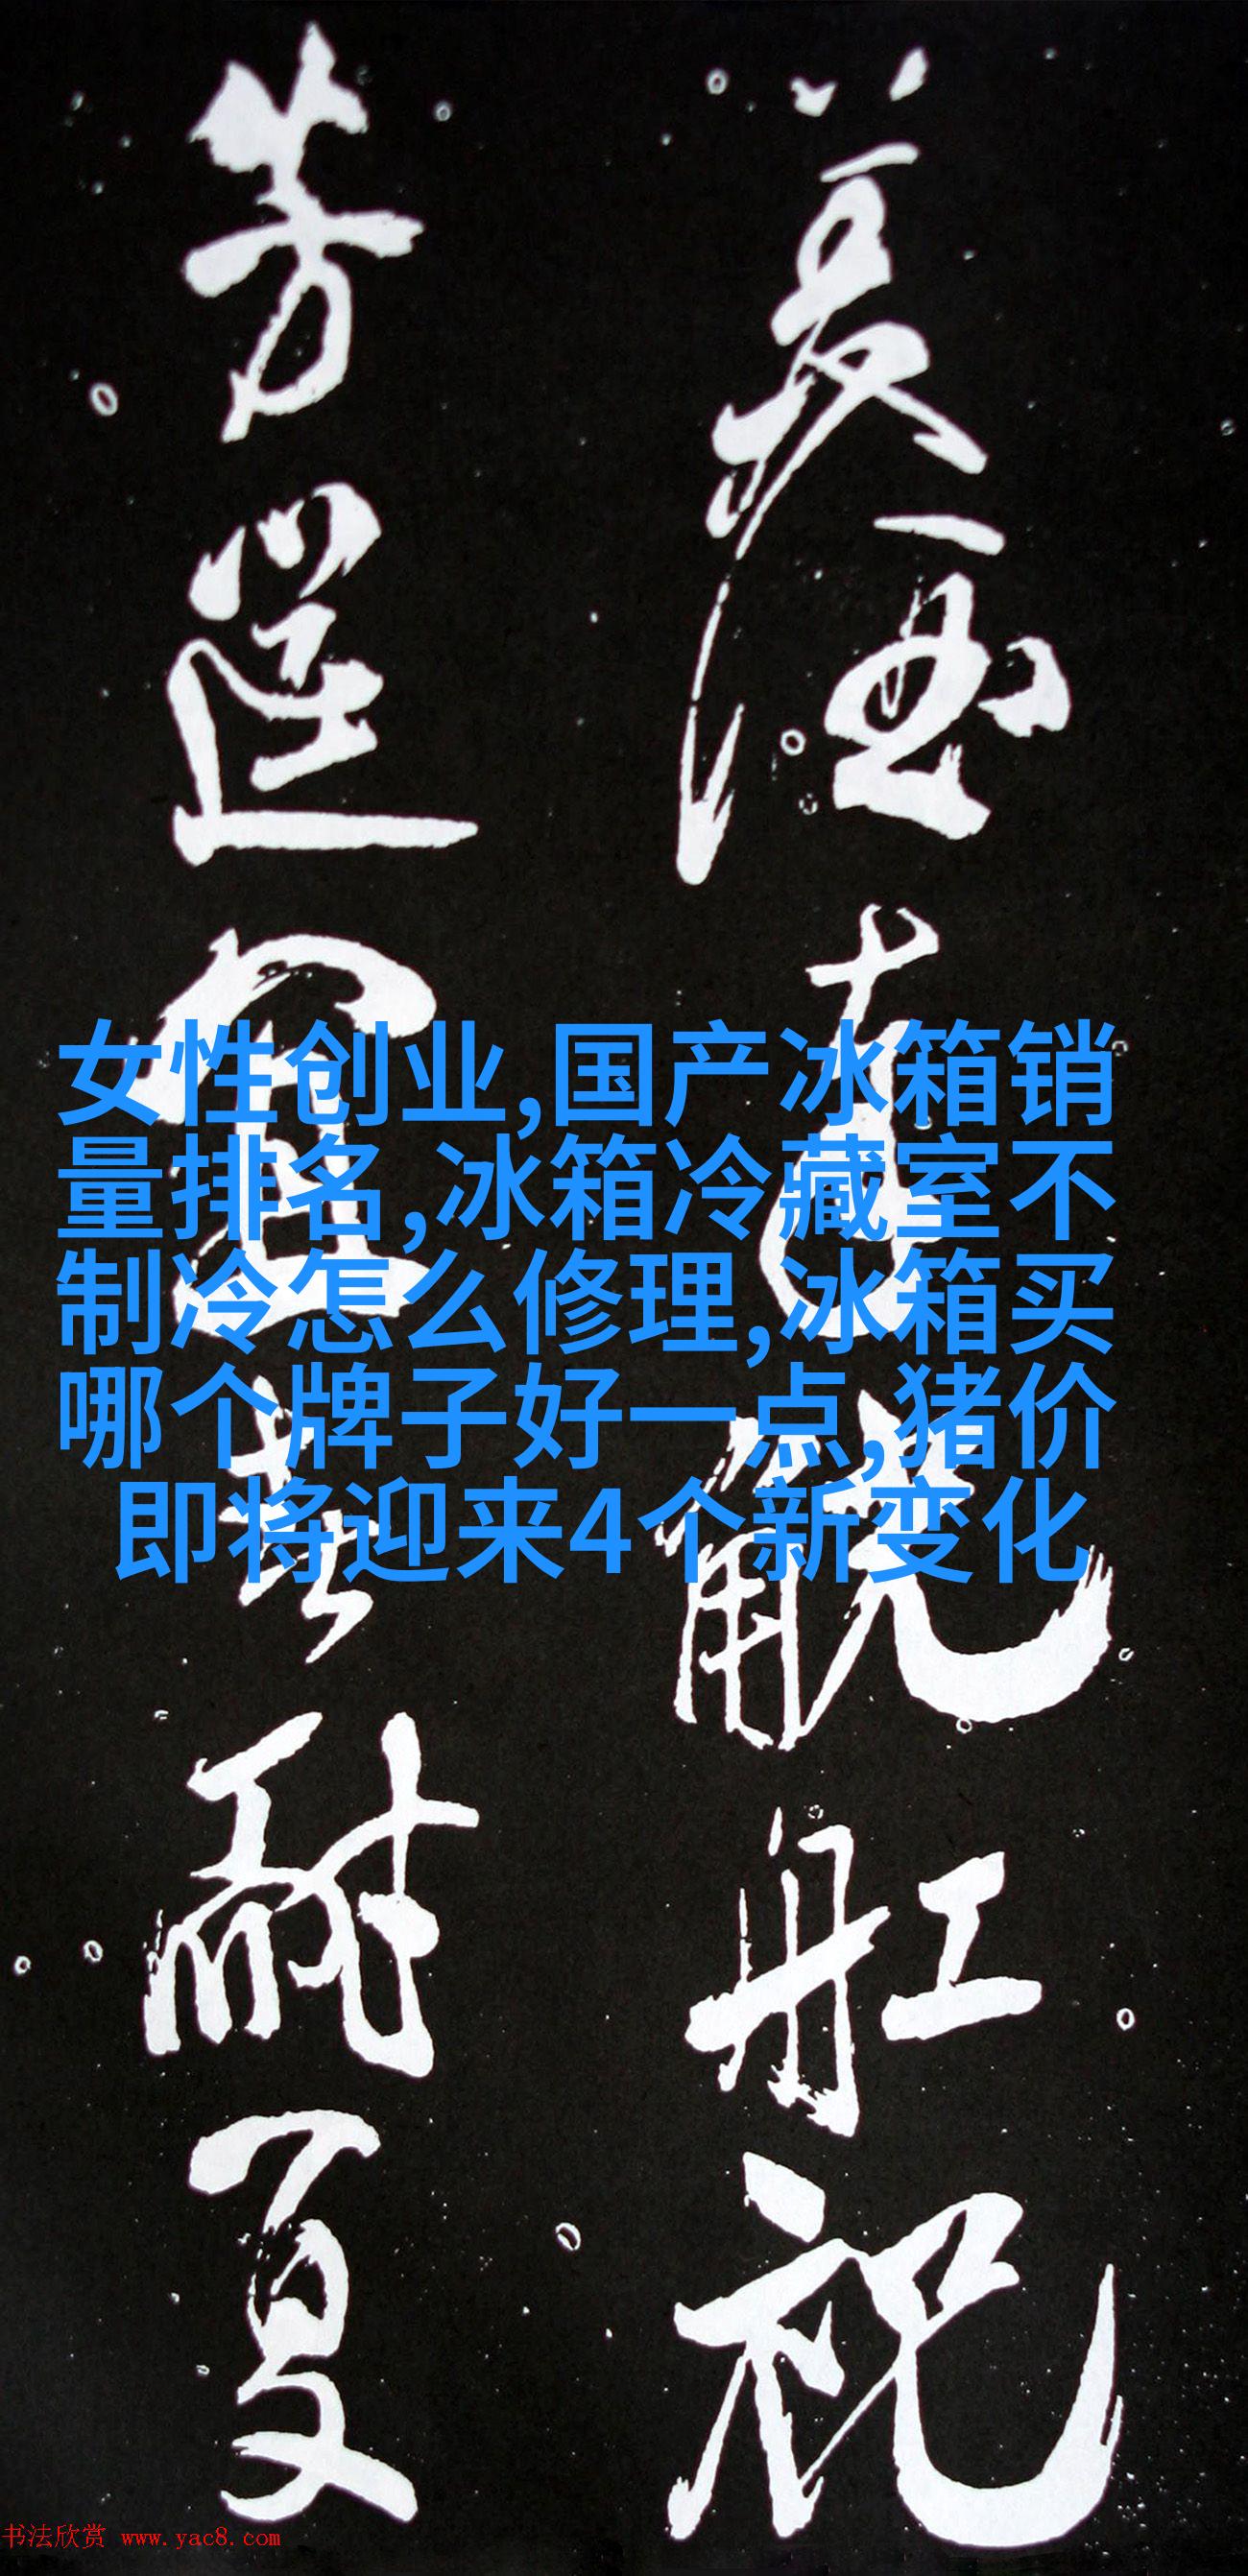 美酒觥舡祝
芳筵耐夏
女性创业,国产冰箱销
量排名,冰箱冷藏室不
制冷怎么修理,冰箱买
哪个牌子好一点,猪价
即将迎来4个新变化
书法欣赏 www.yac8.com